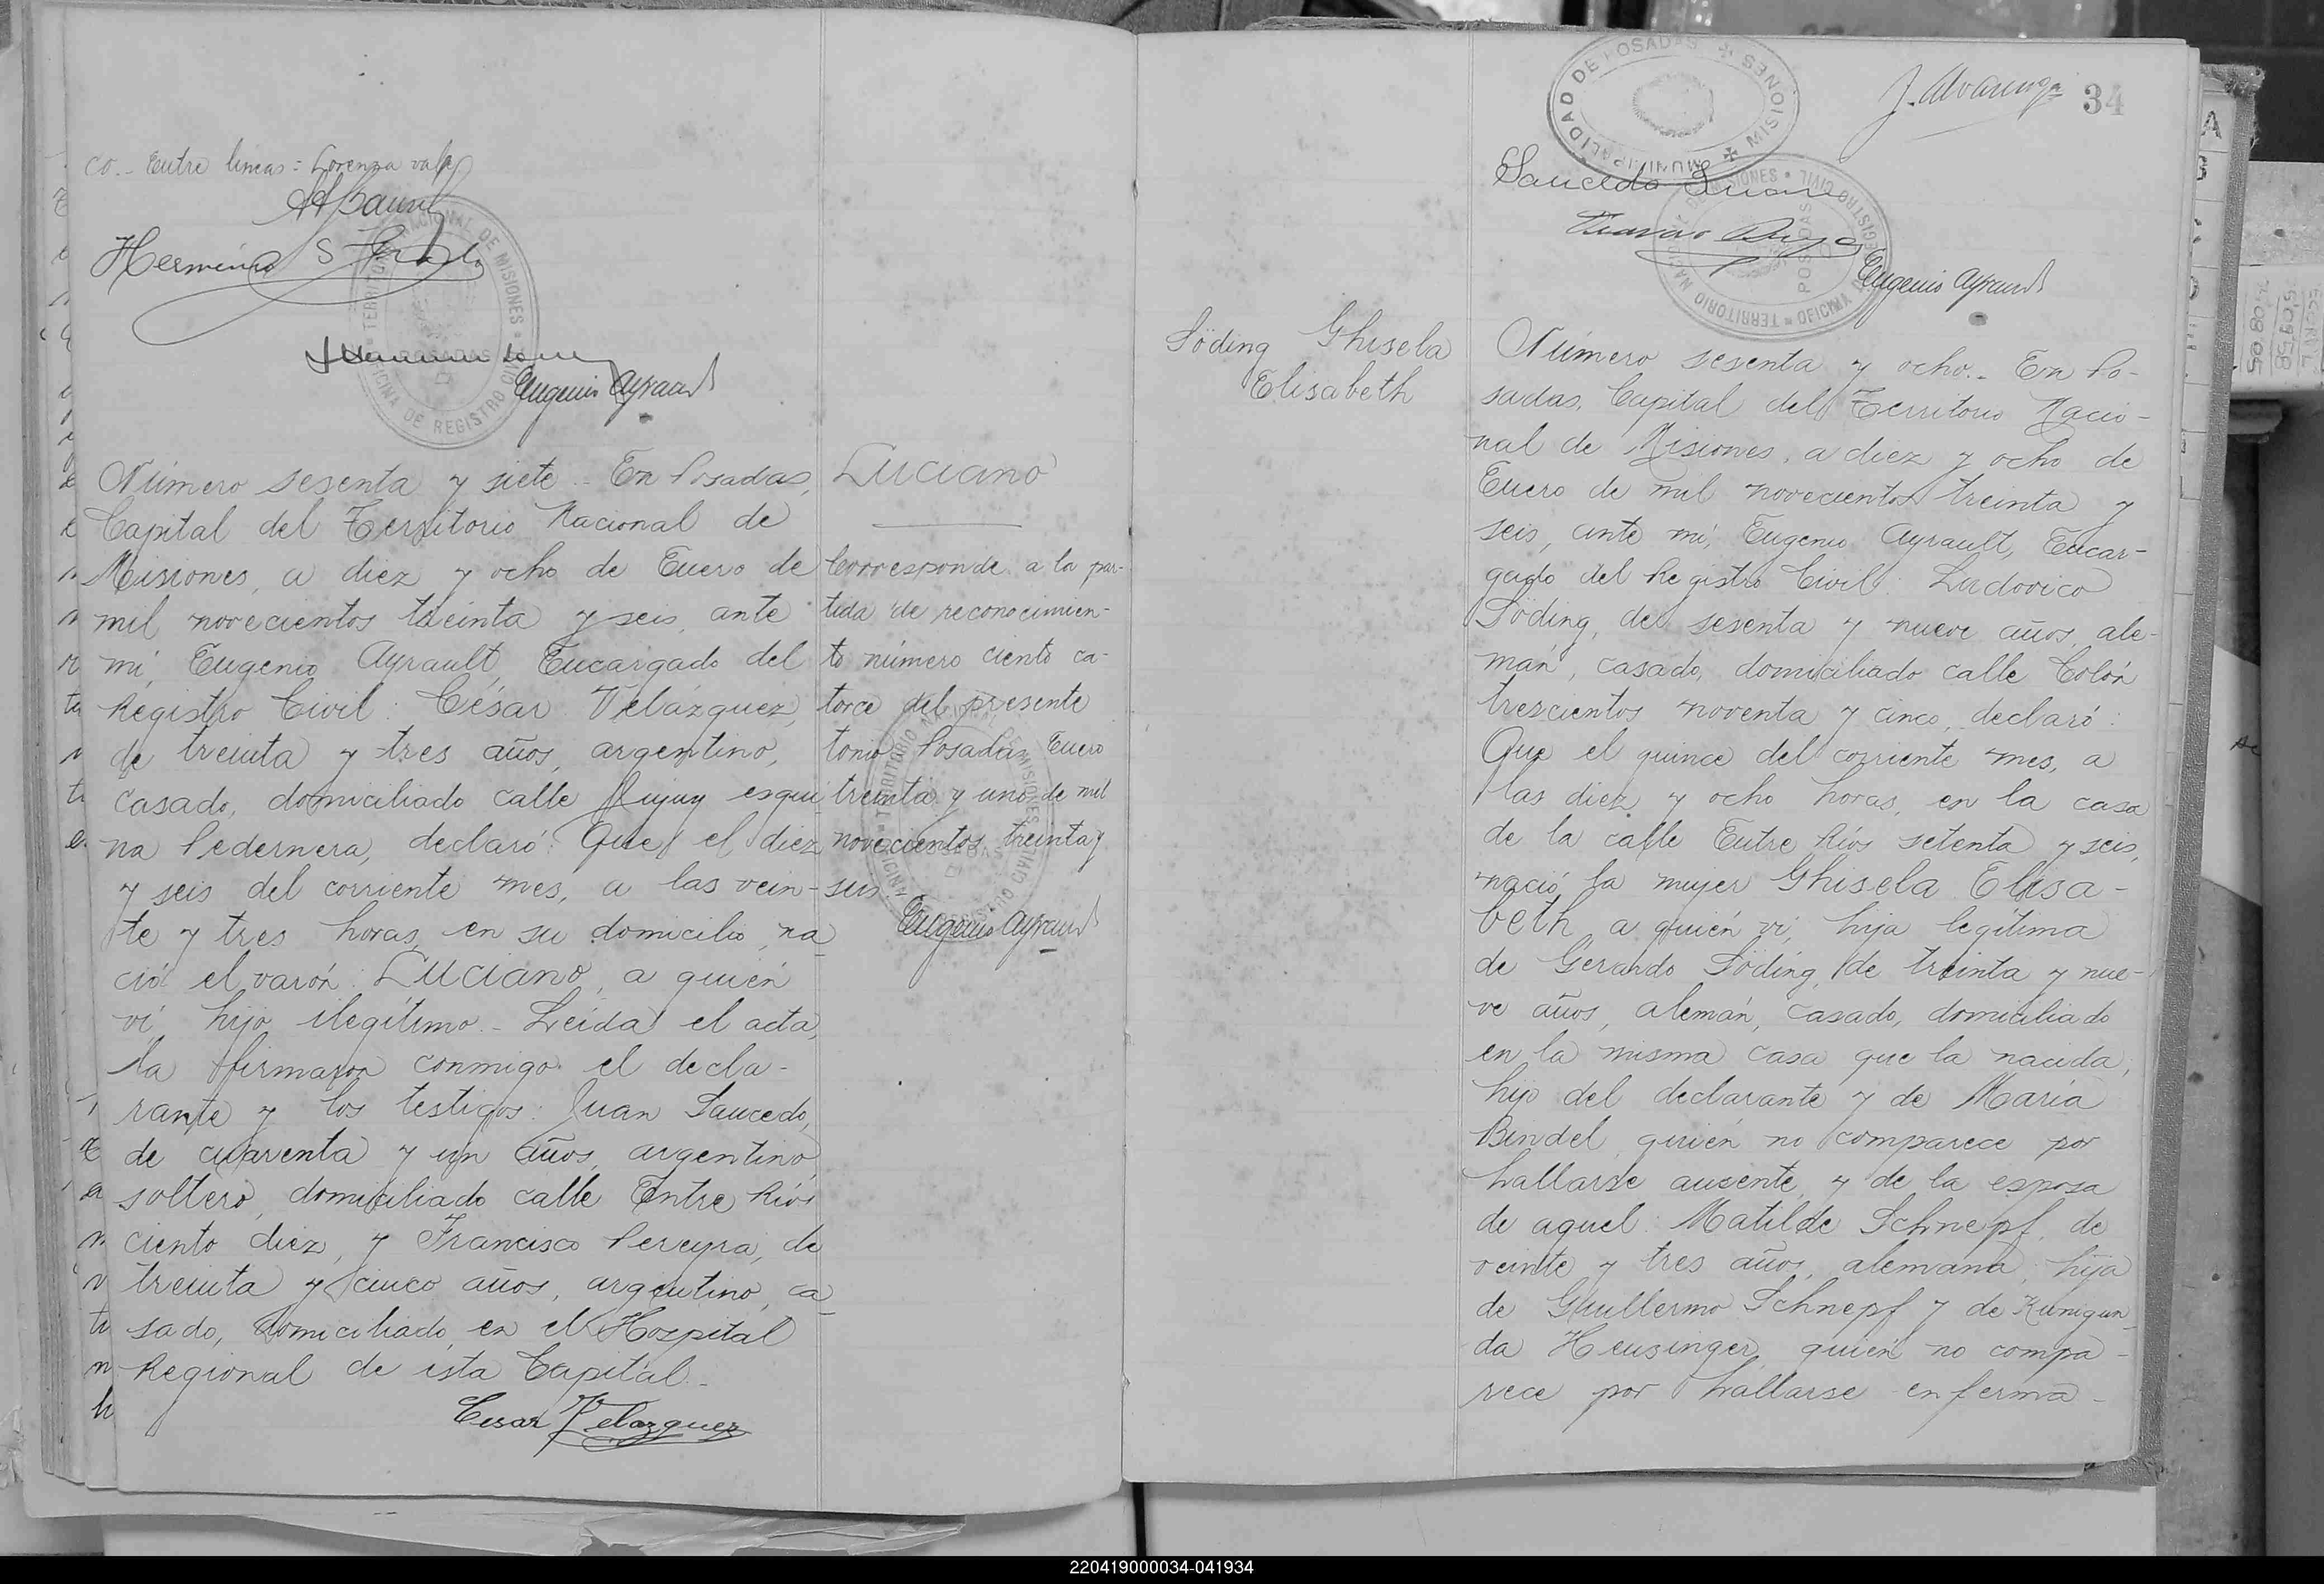 co.- Entre líneas: Lorenza vale
Eugenio Ayrault
Número sesenta y siete.- En Posadas,
Capital del Territorio Nacional de
Misiones, a diez y ocho de Enero de
mil novecientos treinta y seis, ante
mí, Eugenio Ayrault, Encargado del
Registro Civil: César Velázquez,
de treinta y tres años, argentino,
casado, domiciliado calle Jujuy esqui
na Pedernera, declaró: Que el diez
y seis del corriente mes, a las vein-
te y tres horas, en su domicilio, na
ció el varón: Luciano, a quién
ví, hijo ilegítimo.- Leída el acta,
la firmaron conmigo el decla-
rante y los testigos: Juan Saucedo,
de cuarenta y un años, argentino
soltero, domiciliado calle Entre Ríos
ciento diez, y Francisco Pereyra, de
treinta y cinco años, argentino, ca
sado, domiciliado, en el Hospital
Regional de esta Capital.-
Cesar Velazquez
Luciano
Corresponde a la par-
tida de reconocimien-
to número ciento ca-
torce del presente
tomo Posadas Enero
treinta y uno de mil
novecientos treinta y
seis.-
Eugenio Ayrault
MUNICIPALIDAD DE POSADAS MISIONES
34
Saucedo Juan
Eugenio Ayrault
Söding Ghisela
Elisabeth
Número sesenta y ocho.- En Po-
sadas, Capital del Territorio Nacio-
nal de Misiones, a diez y ocho de
Enero de mil novecientos treinta y
seis, ante mí, Eugenio Ayrault, Encar-
gado del Registro Civil: Ludovico
Söding, de sesenta y nueve años, ale-
mán, casado, domiciliado calle Colón
trescientos noventa y cinco, declaró:
Que el quince del corriente mes, a
las diez y ocho horas, en la casa
de la calle Entre Ríos setenta y seis,
nació la mujer Ghisela Elisa-
beth a quién ví, hija legítima
de Gerardo Söding, de treinta y nue-
ve años, alemán, casado, domiciliado
en la misma casa que la nacida,
hijo del declarante y de María
Bindel, quién no comparece por
hallarse ausente, y de la esposa
de aquel: Matilde Schnepf, de
veinte y tres años, alemana, hija
de Guillermo Schnepf y de Kunigun
da Heusinger, quién no compa-
rece por hallarse enferma-
220419000034-041934